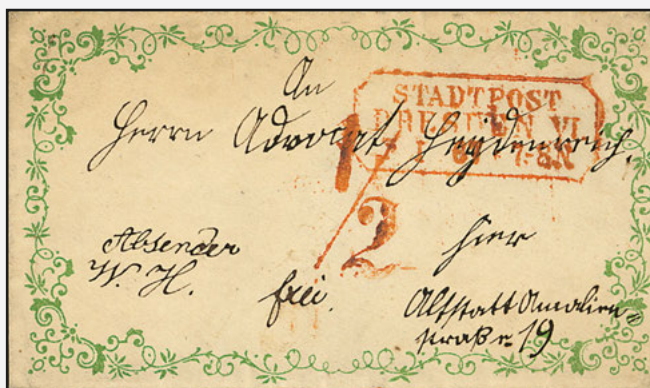 An
STADTPOST
DRESDEN VI
Herrn Advocat Heydenreich.
1/2
hier
Absender
W. H.
frei.
Altstatt Amalien=
straße 19